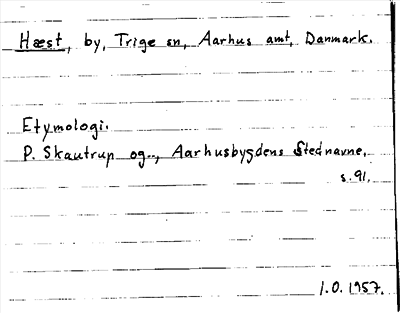 Hæst, by, Trige sn, Aarhus amt, Danmark.
Etymologi.
P. Skautrup og.., Aarhusbygdens Stednavne,
s.91.
1.0.1957.